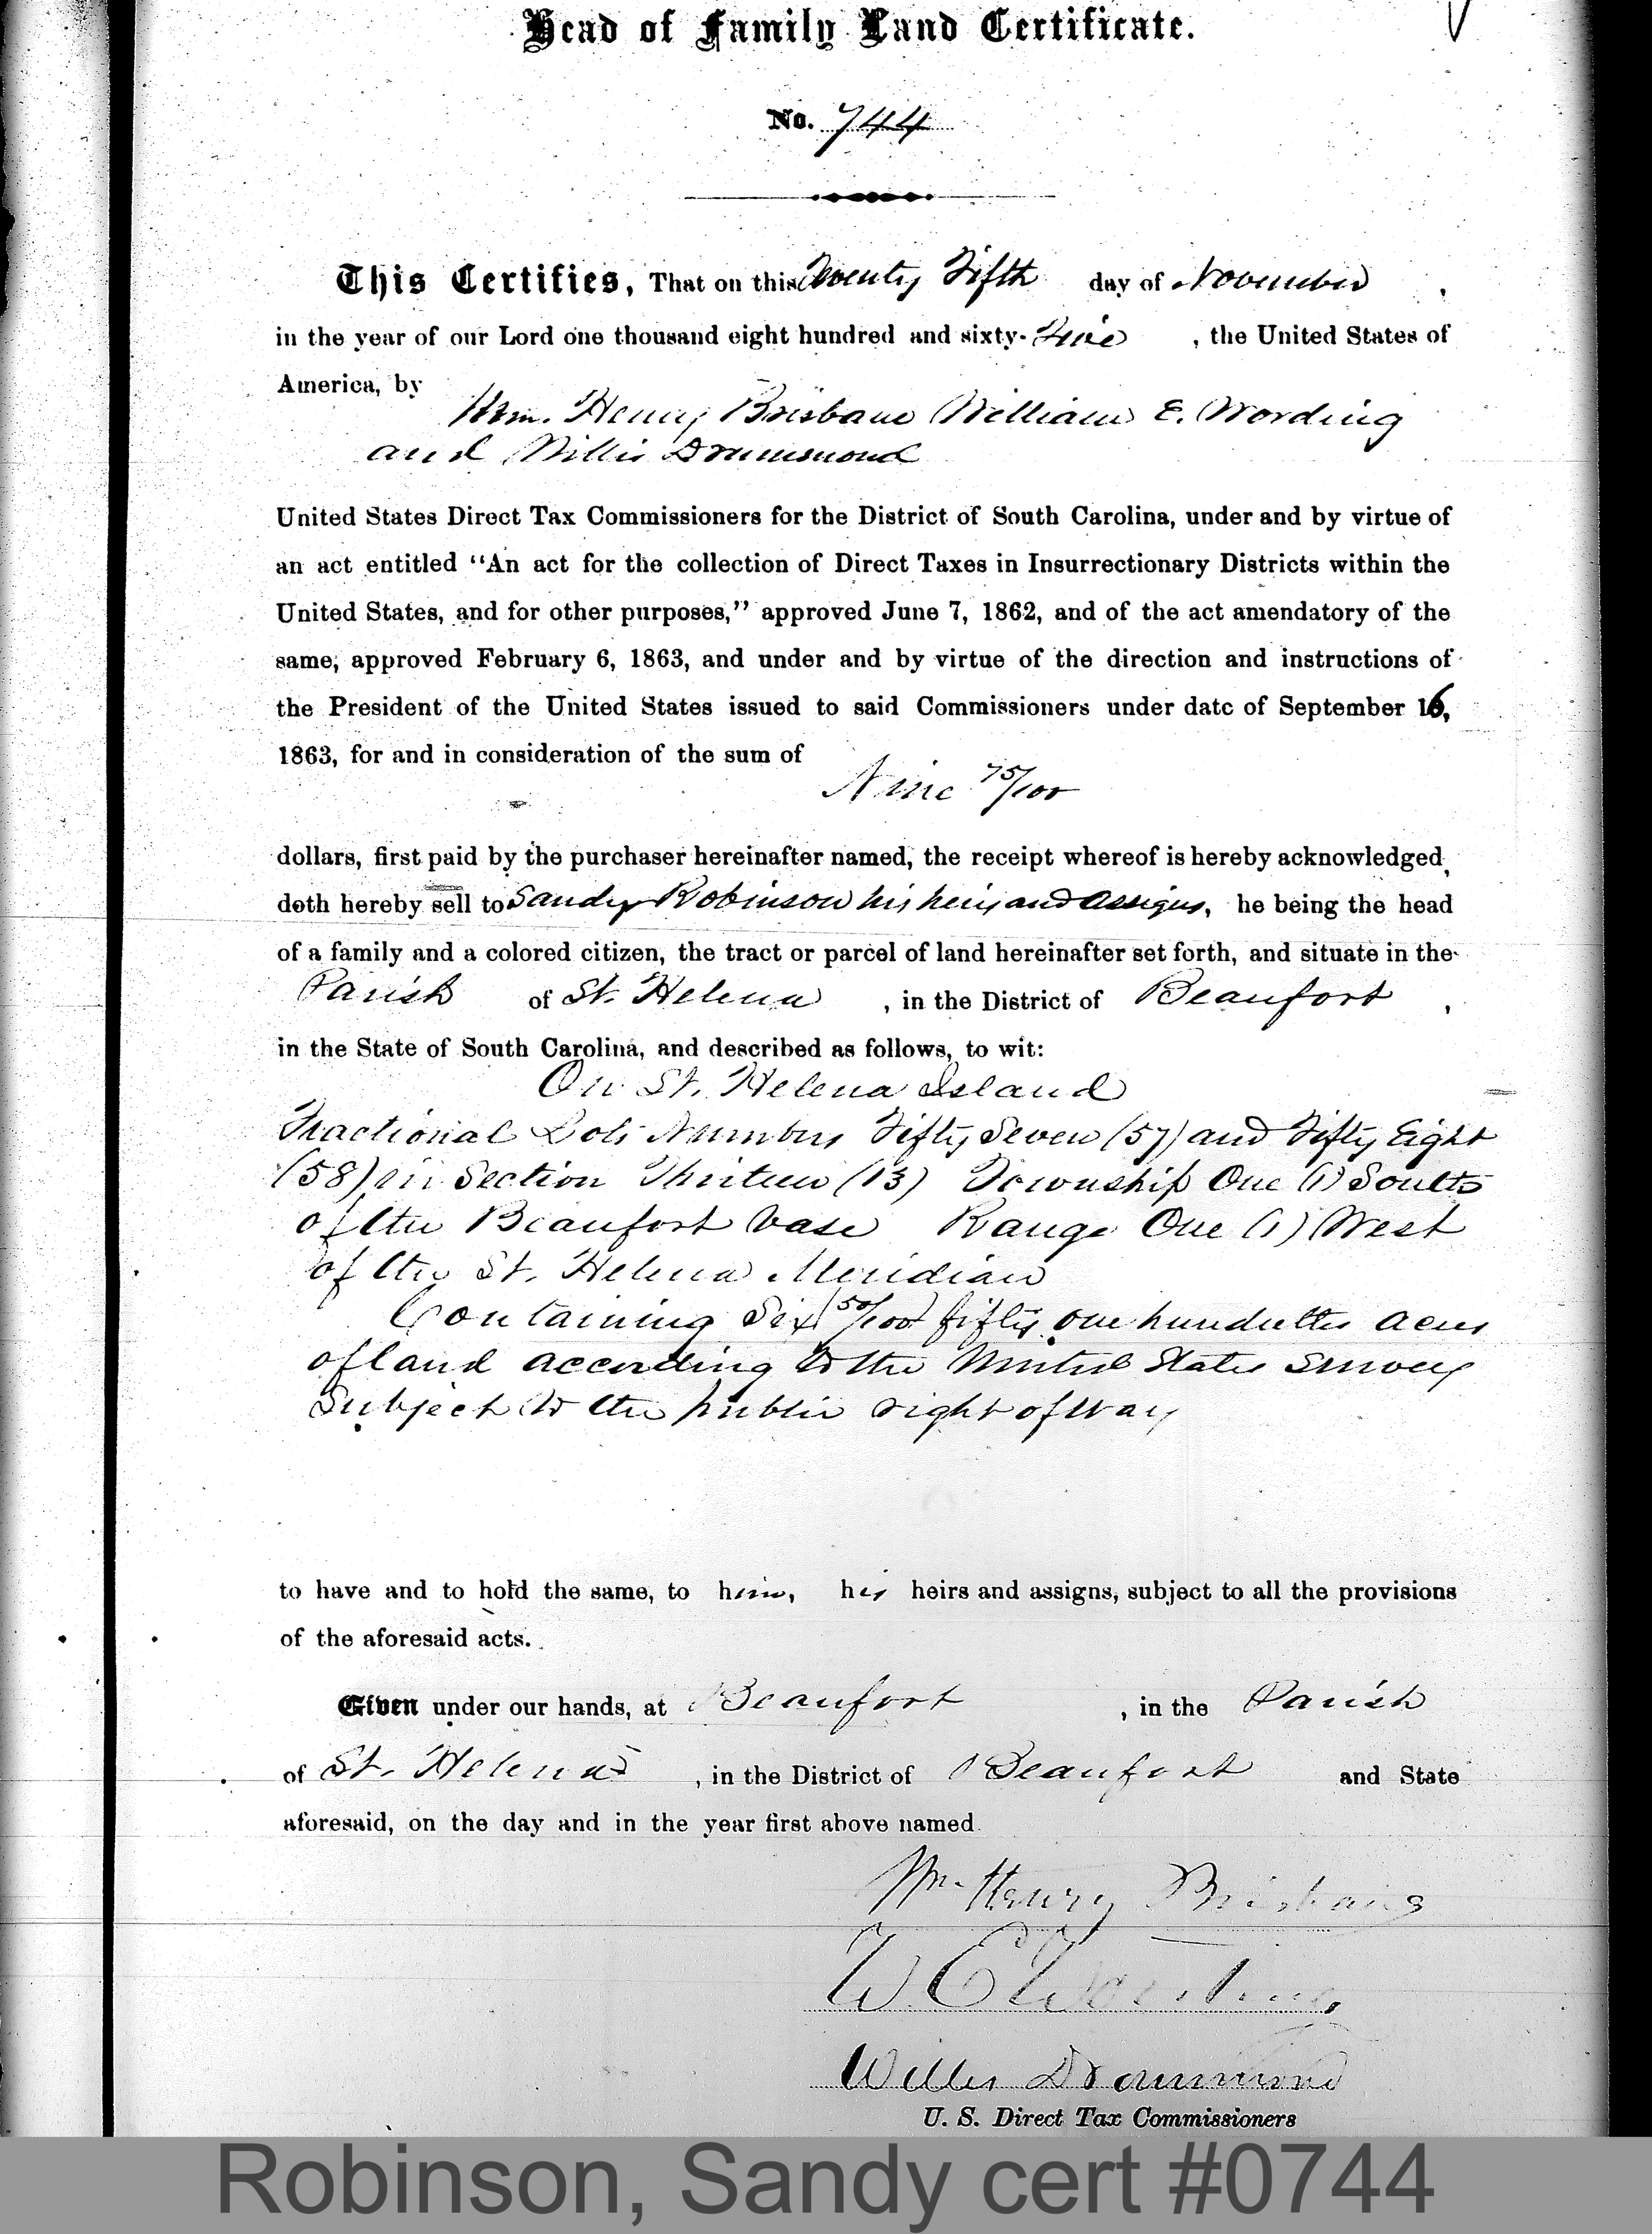 Head of Family Land Certificate.
No. 744
This Certifies, That on this Twenty Fifth day of November,
in the year of our Lord one thousand eight hundred and sixty-Five, the United States of
America, by
Wm. Henry Brisbane William E. Wording
and Willis Drummond
United States Direct Tax Commissioners for the District of South Carolina, under and by virtue of
an act entitled "An act for the collection of Direct Taxes in Insurrectionary Districts within the
United States, and for other purposes," approved June 7, 1862, and of the act amendatory of the
same, approved February 6, 1863, and under and by virtue of the direction and instructions of
the President of the United States issued to said Commissioners under date of September 16,
1863, for and in consideration of the sum of
Nine 75/100
dollars, first paid by the purchaser hereinafter named, the receipt whereof is hereby acknowledged,
doth hereby sell to Sandy Robinson his heirs and assigns, he being the head
of a family and a colored citizen, the tract or parcel of land hereinafter set forth, and situate in the
Parish of St. Helena, in the District of Beaufort,
in the State of South Carolina, and described as follows, to wit:
On St. Helena Island
Fractional Lots Numbers Fifty Seven (57) and Fifty Eight
(58) in Section Thirteen (13) Township One (1) South
of the Beaufort base Range One (1) West
of the St. Helena Meridian
Containing Six 50/100 fifty one hundredths acres
of land according to the United States Survey
Subject to the public right of way
to have and to hold the same, to him, his heirs and assigns, subject to all the provisions
of the aforesaid acts.
Given under our hands, at Beaufort, in the Parish
of St. Helena, in the District of Beaufort and State
aforesaid, on the day and in the year first above named.
Wm. Henry Brisbane
W. E. Wording
Willis Drummond
U. S. Direct Tax Commissioners
Robinson, Sandy cert #0744